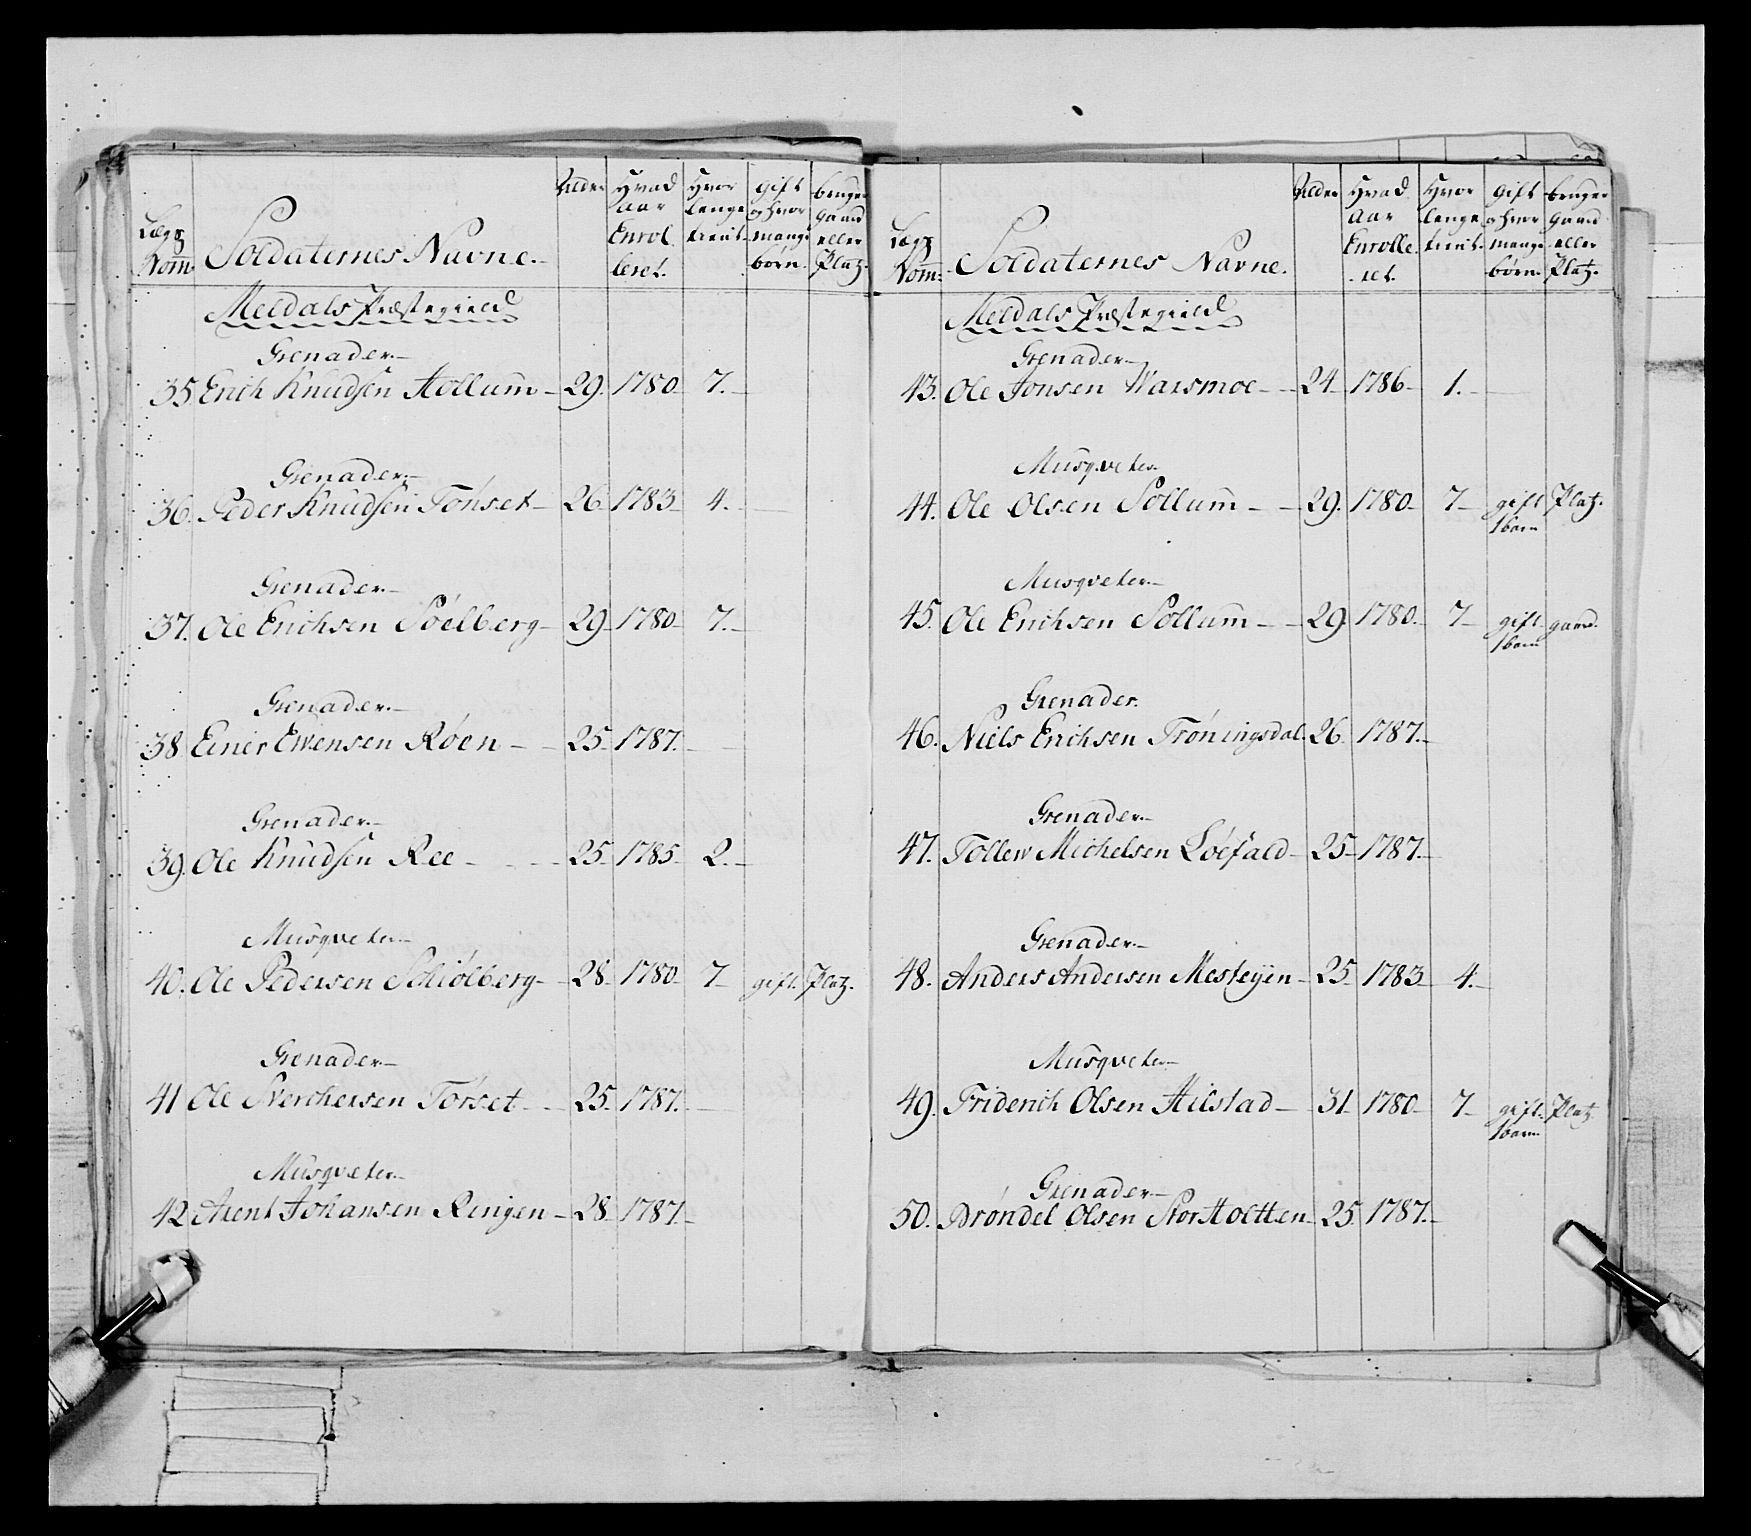 Lægs Nom: Soldaternes Navne. Alder Hvad Aar Enrolleret. Hvor lenge tient. Gift og hvor mange børn. beniger Gaard eller Platz.
Meldals Præstegield
Grenader.
35 Erich Knudsen Hollum 29. 1780 7.
Grenader.
36. Peder Knudsen Tønset 26 1783 4.
Grenader.
37. Ole Erichsen Søelberg 29 1780 7.
Grenader.
38 Einer Evensen Røen 25 1787.
Grenader.
39. Ole Knudsen Ree 25 1785 2.
Musqveter.
40. Ole Pedersen Schiølberg 28 1780 7 gift. Platz.
Grenader.
41 Ole Sverchersen Torset 25 1787.
Musqveter.
42 Arent Johansen Ringen 28 1787.
Lægs Nom: Soldaternes Navne. Alder Hvad Aar Enrolleret. Hvor lenge tient. Gift og hvor mange børn. beniger Gaard eller Platz.
Meldals Præstegield
Grenader.
43. Ole Jonsen Warsmoe 24 1786 1.
Musqveter.
44. Ole Olsen Sollum 29. 1780 7 gift Platz.
1 barn
Musqveter.
45. Ole Erichsen Sollum 29 1780. 7 gift gaard.
1 barn
Grenader.
46. Niels Erichsen Trøningsdal 26 1787.
Grenader.
47. Tollew Michelsen Løefald 25 1787.
Grenader.
48. Anders Andersen Mesteyen 25 1783 4.
Musqveter.
49. Friderich Olsen Hilstad 31 1780 7 gift. Platz
1 barn
Grenader.
50. Brøndel Olsen StorHoltten 25 1787.